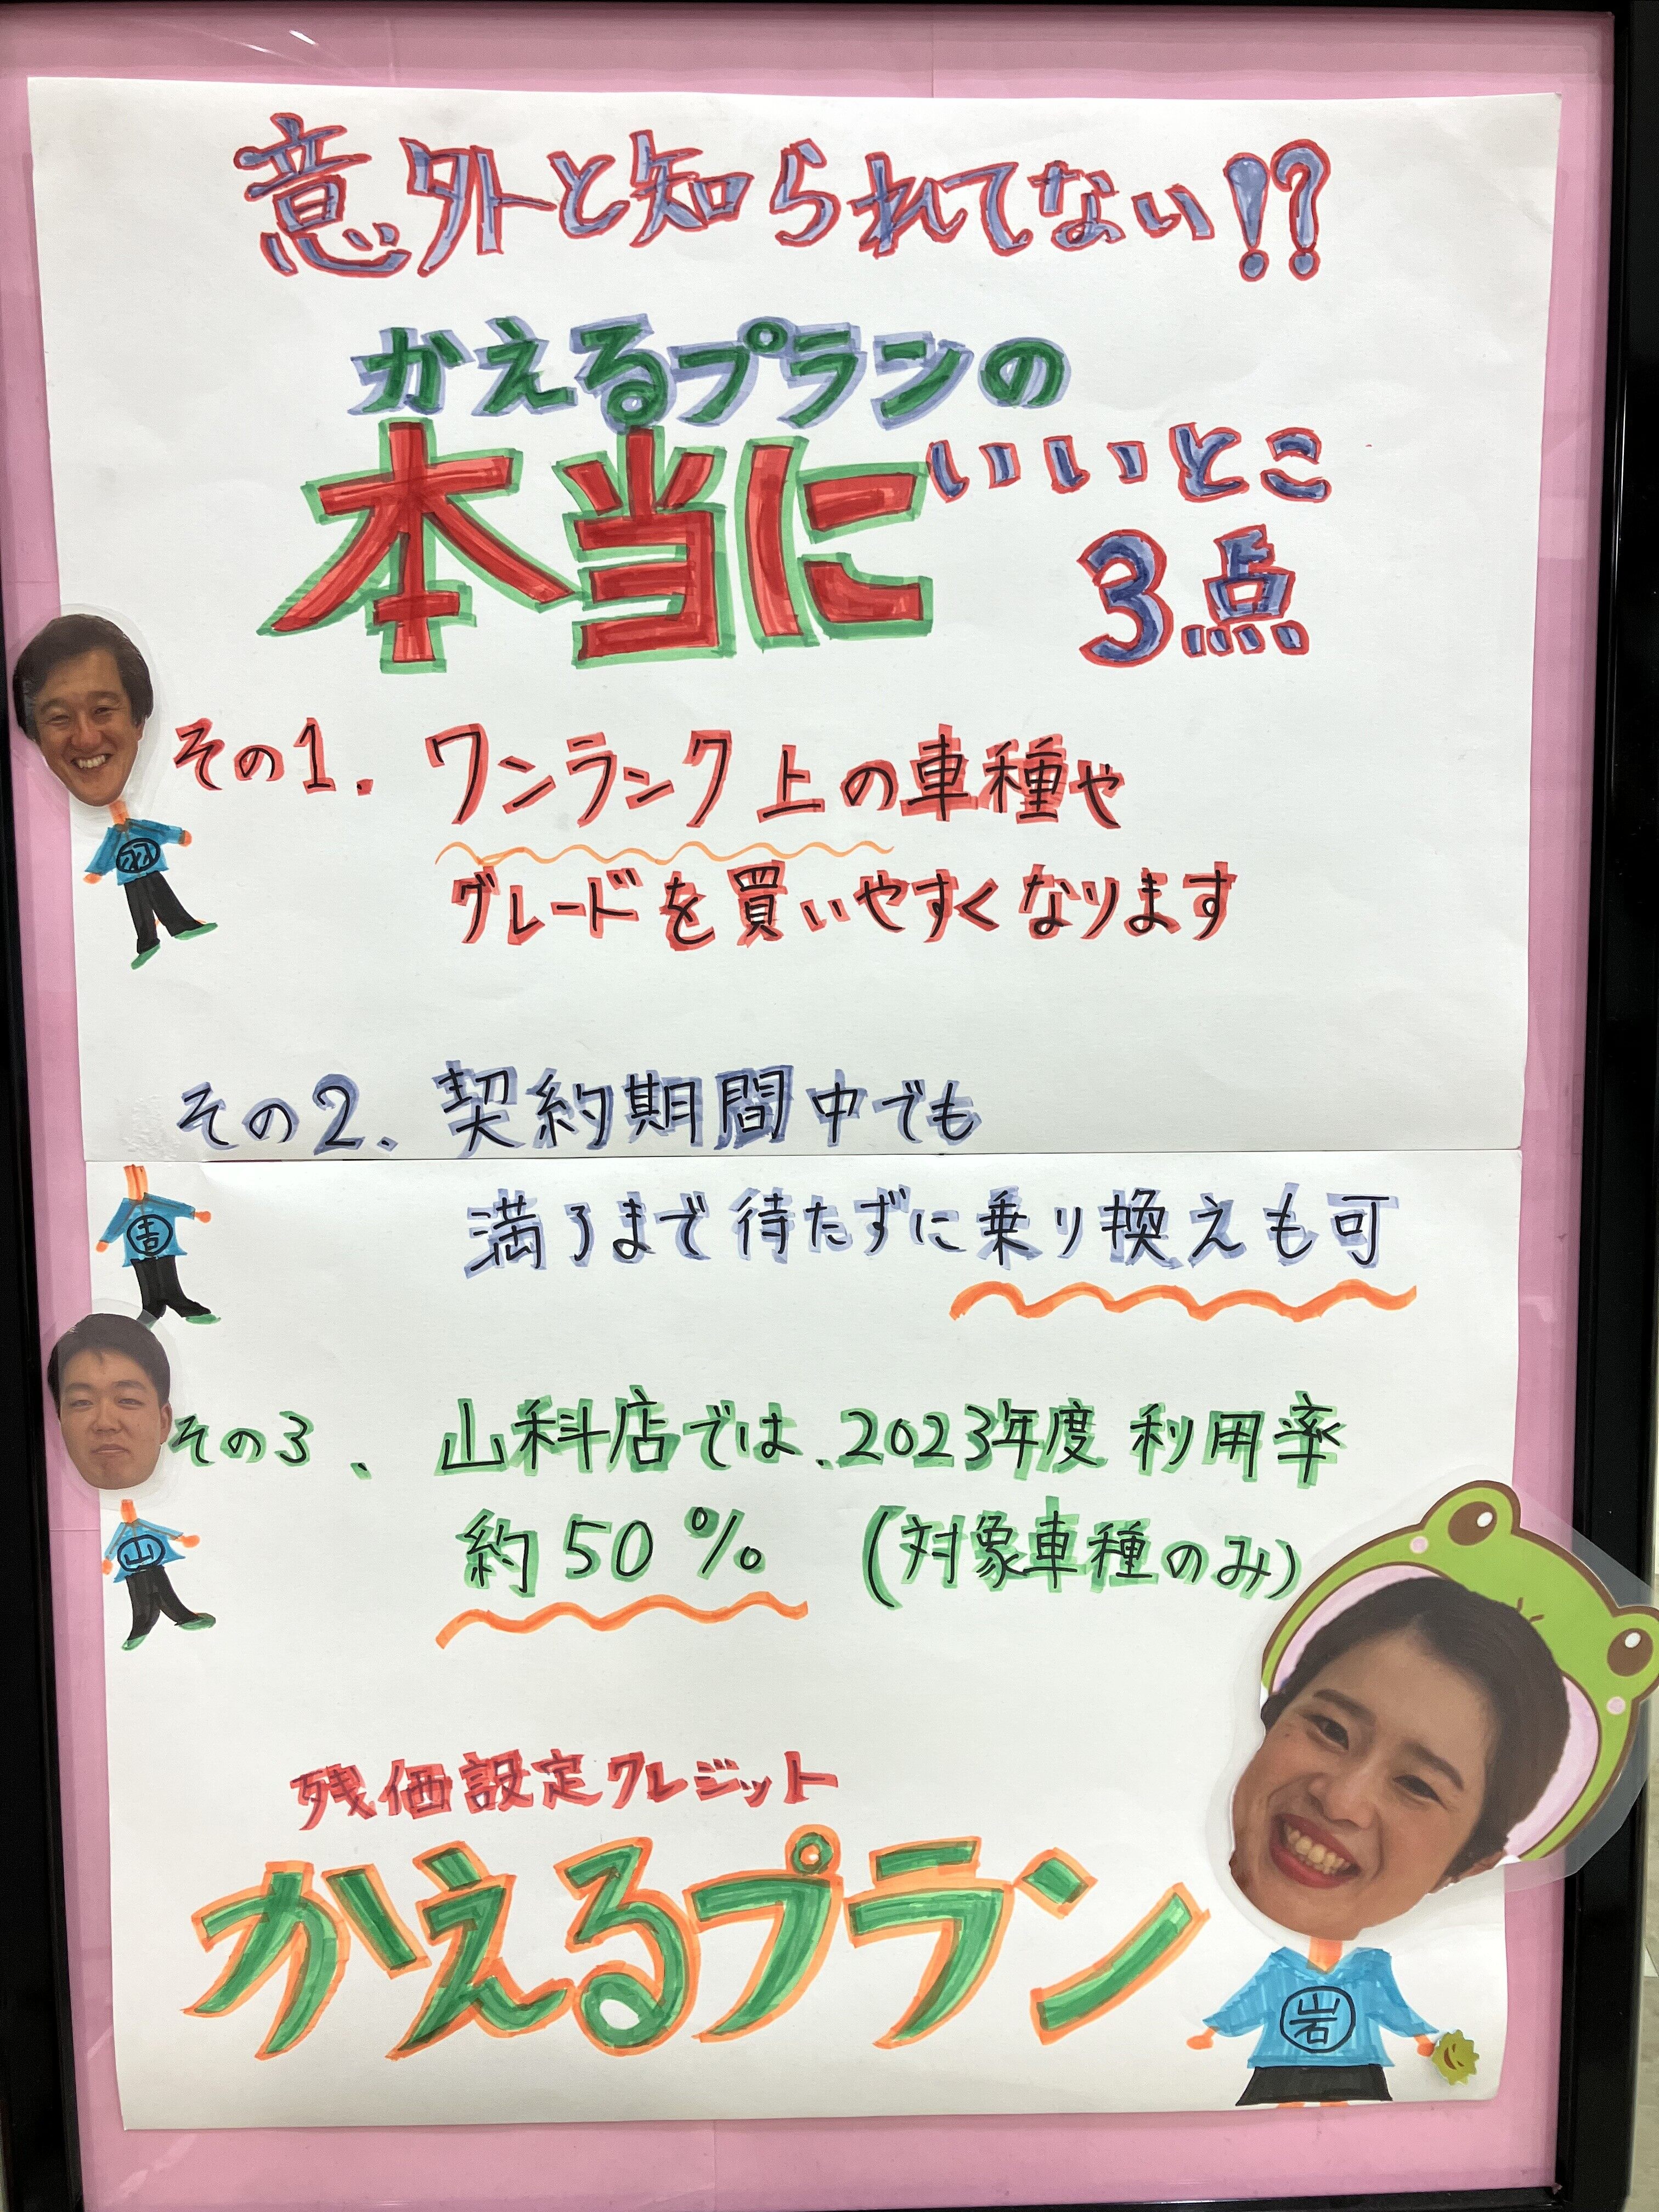 意外と知られてない!?
かえるプランの
本当にいいとこ
3点
その1. ワンランク上の車種や
グレードを買いやすくなります
その2. 契約期間中でも
満了まで待たずに乗り換えも可
その3、山科店では、2023年度 利用率
約50% (対象車種のみ)
残価設定クレジット
かえるプラン
羽
吉
山
岩